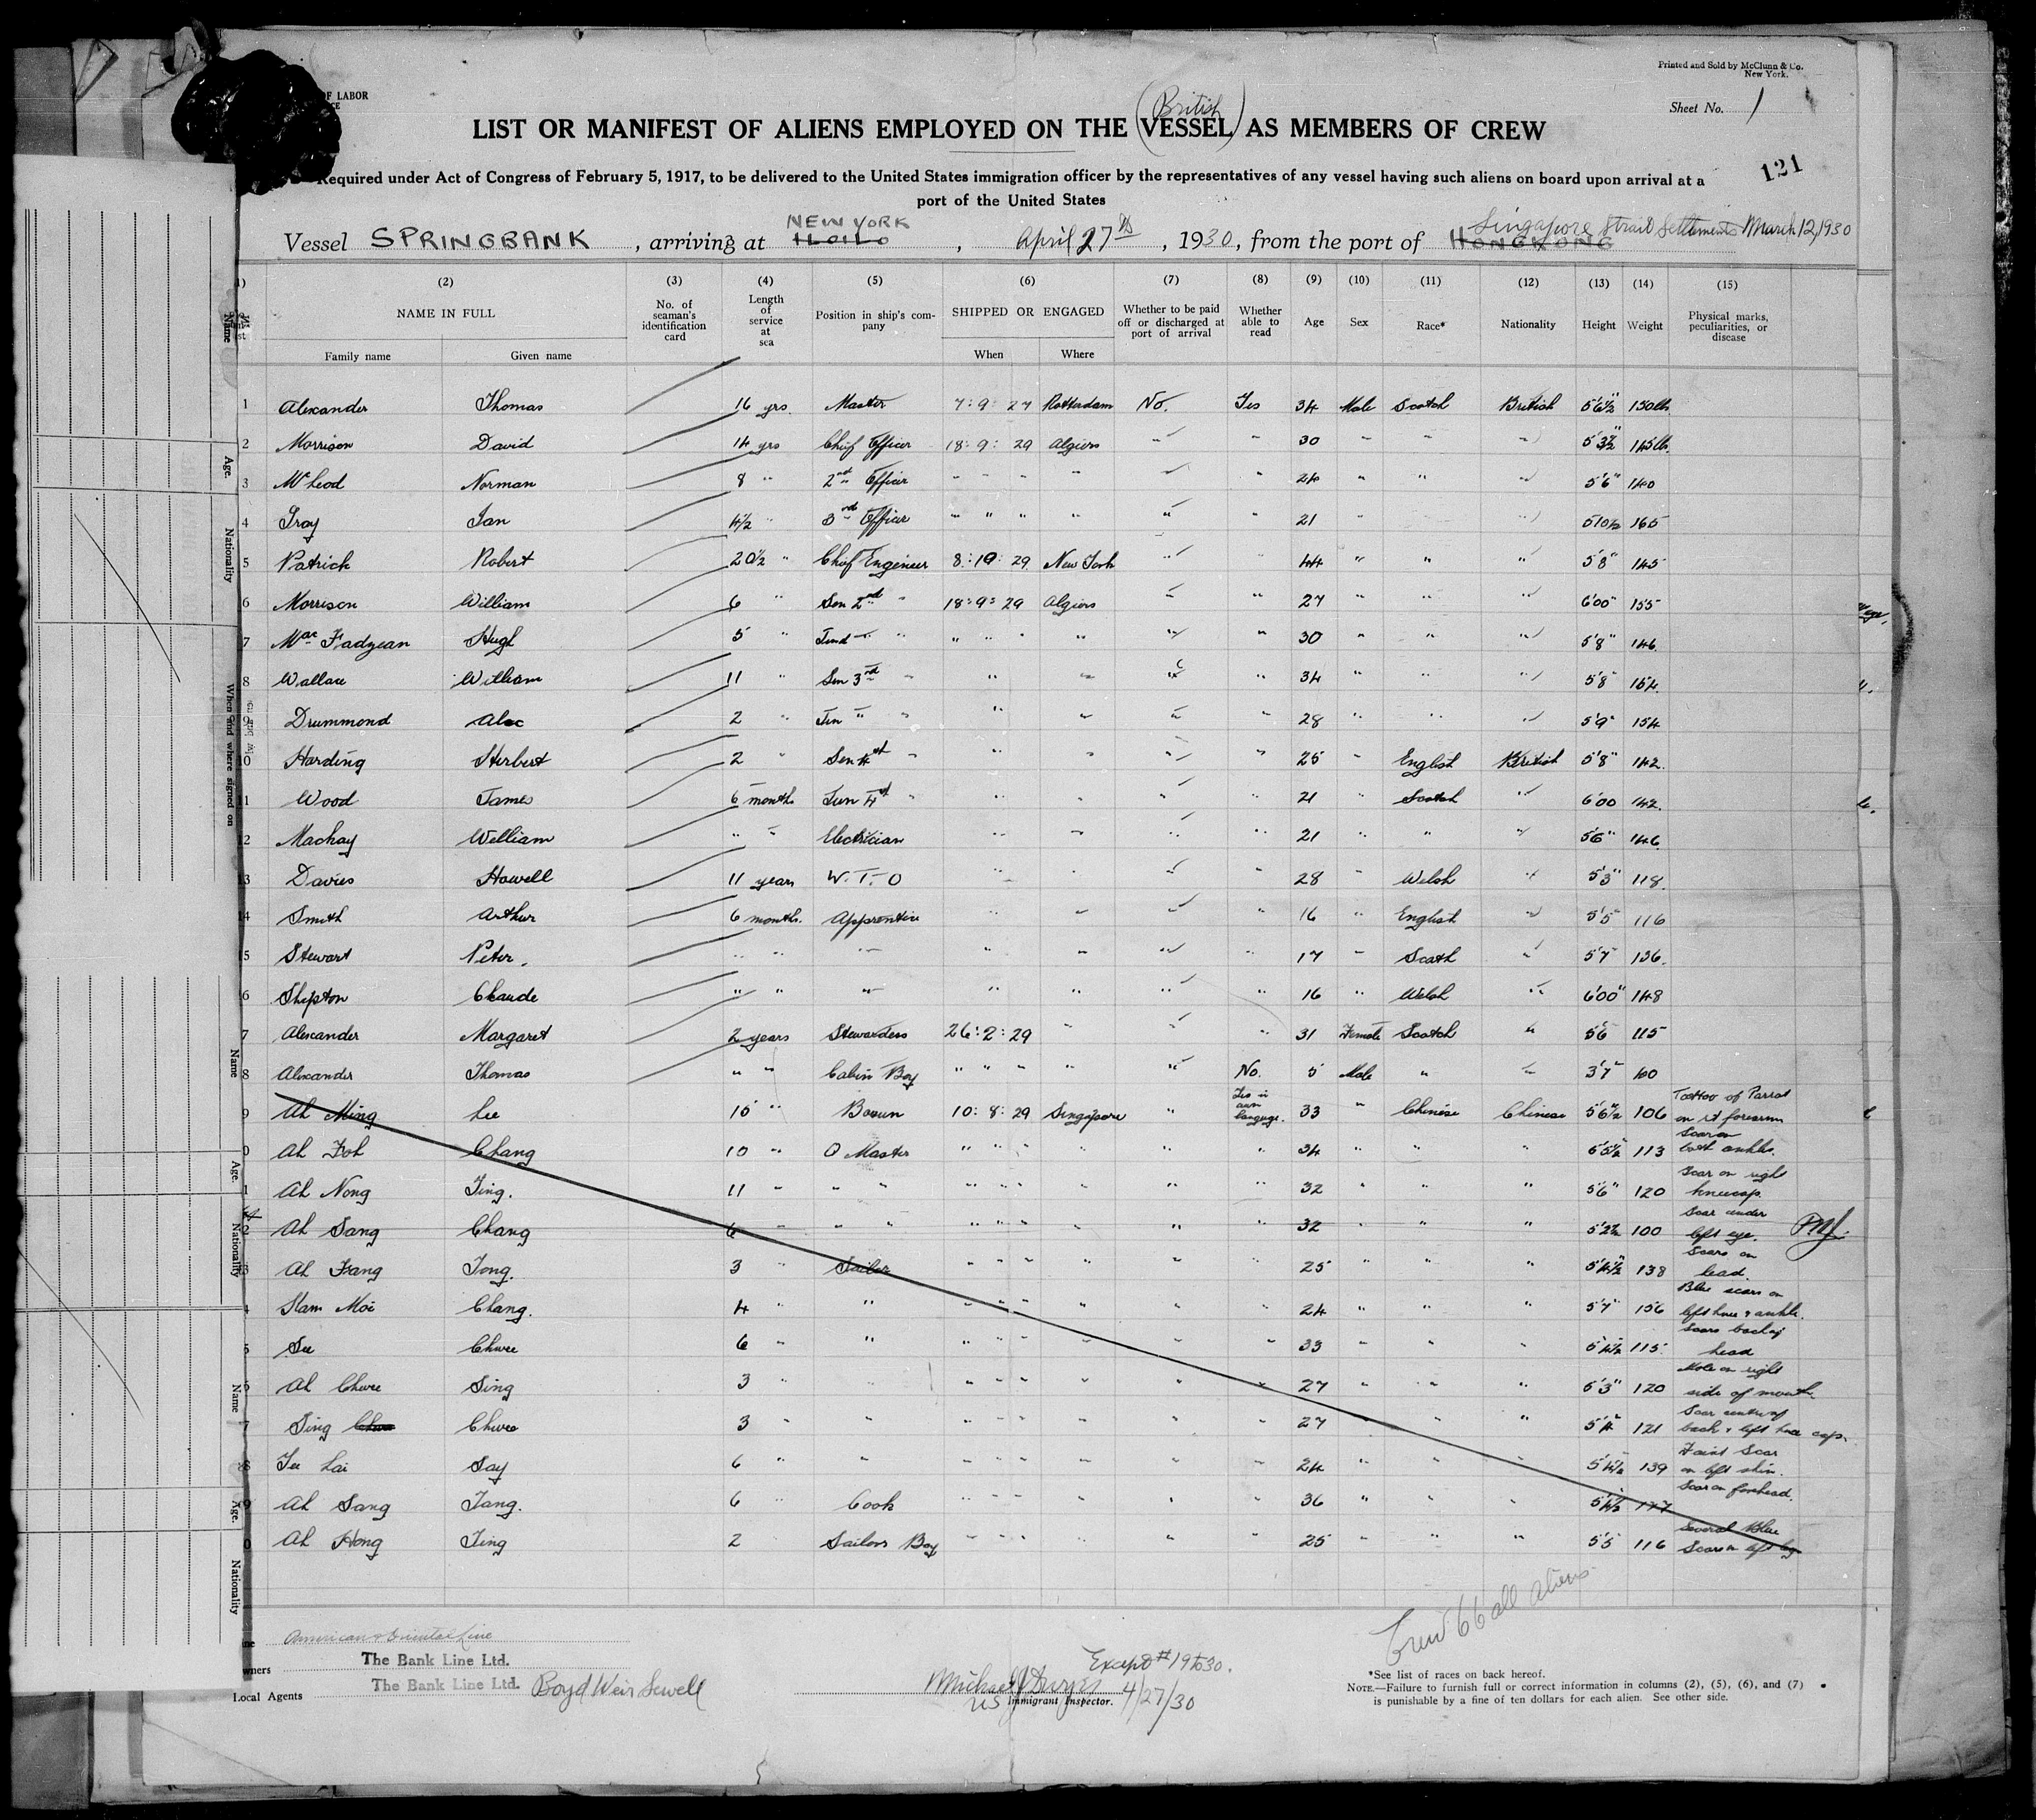 Printed and Sold by McClunn & Co.
New York.
OF LABOR
Sheet No. 1
(British)
LIST OR MANIFEST OF ALIENS EMPLOYED ON THE VESSEL AS MEMBERS OF CREW
121
Required under Act of Congress of February 5, 1917, to be delivered to the United States immigration officer by the representatives of any vessel having such aliens on board upon arrival at a
port of the United States
Vessel SPRINGBANK, arriving at NEW YORK ILOILO, April 27th, 1930, from the port of HONGKONG Singapore Strait Settlements March 12, 1930
(2) (3) (4) (5) (6) (7) (8) (9) (10) (11) (12) (13) (14) (15)
NAME IN FULL No. of seaman's identification card Length of service at sea Position in ship's company SHIPPED OR ENGAGED Whether to be paid off or discharged at port of arrival Whether able to read Age Sex Race* Nationality Height Weight Physical marks, peculiarities, or disease
Family name Given name When Where
1 Alexander Thomas 16 yrs. Master 7:9:27 Rotterdam No. Yes 34 Male Scotch British 5'6½" 150lb
2 Morrison David 14 yrs Chief Officer 18:9:29 Algiers " " 30 " " " 5'3½" 145lb.
3 McLeod Norman 8 " 2nd Officer " " " " " " 24 " " " 5'6" 140
4 Troy Ian 4½ " 3rd Officer " " " " " " 21 " " " 5'10½ 165
5 Patrick Robert 20½ " Chief Engineer 8:10:29 New York " " 44 " " " 5'8" 145
6 Morrison William 6 " Sen 2nd " 18:9:29 Algiers " " 27 " " " 6'00" 155
7 MacFadyean Hugh 5 " " " " " " " " 30 " " " 5'8" 146.
8 Wallace William 11 " Sen 3rd " " " " " 34 " " " 5'8" 154.
9 Drummond Alec 2 " Jun " " " " " " 28 " " " 5'9" 154
10 Harding Herbert 2 " Sen 4th " " " " " 25 " English British 5'8" 142.
11 Wood James 6 months Jun 4th " " " " " 21 " Scotch " 6'00 142.
12 Mackay William " " Electrician " " " " 21 " " " 5'6" 146.
13 Davies Howell 11 years W.T.O " " " " 28 " Welsh " 5'3" 118.
14 Smith Arthur 6 months. Apprentice " " " " 16 " English " 5'5" 116
15 Stewart Peter. " " " " " " " 17 " Scotch " 5'7" 136.
16 Shipton Claude " " " " " " " 16 " Welsh " 6'00" 148
17 Alexander Margaret 2 years Stewardess 26:2:29 " " " 31 Female Scotch " 5'6 115
18 Alexander Thomas " " Cabin Boy " " " " " No. 5 Male " " 3'7"
19 Ah Ming Lee 15 " Bosun 10:8:29 Singapore " Yes in own language. 33 " Chinese Chinese 5'6½" 106 Tattoo of Parrot on rt forearm
20 Ah Foh Chang 10 " Q Master " " " " " " 34 " " " 5'5½" 113 Scar on both ankles.
21 Ah Nong Ting. 11 " " " " " " " " " 32 " " " 5'6" 120 Scar on right kneecap.
22 Ah Sang Chang 6 " " " " " " " " " 32 " " " 5'2½ 100 Scar under left eye.
23 Ah Fang Tong. 3 " Sailor " " " " " " 25 " " " 5'4½" 138 Scars on head.
24 Kam Moi Chang. 4 " " " " " " " " 24 " " " 5'7" 156 Blue scars on left knee & ankle.
25 See Chwee 6 " " " " " " " " 33 " " " 5'4½ 115 Scars back of head
26 Ah Chwee Sing 3 " " " " " " " " 27 " " " 5'3" 120 Mole on right side of mouth.
27 Sing Chwee 3 " " " " " " " " 27 " " " 5'4" 121 Scar centre of back & left knee cap.
28 Lai Say 6 " " " " " " " " 24 " " " 5'4½ 139 Faint Scar on left shin.
29 Ah Sang Tang. 6 " Cook " " " " " " 36 " " " 5'4½ Scar on forehead.
30 Ah Hong Ting 2 " Sailors Boy " " " " " " 25 " " " 5'5" 116 Several Blue Scars on left leg
Crew 66 all Aliens
American & Oriental Line
Owners The Bank Line Ltd.
Local Agents The Bank Line Ltd. Boyd Weir Sewell
Except #19 to 30.
Michael
US Immigrant Inspector. 4/27/30
*See list of races on back hereof.
NOTE.—Failure to furnish full or correct information in columns (2), (5), (6), and (7)
is punishable by a fine of ten dollars for each alien. See other side.
Name
Age.
Nationality
When and where signed on
Name
Age.
Nationality
Name
Age.
Nationality